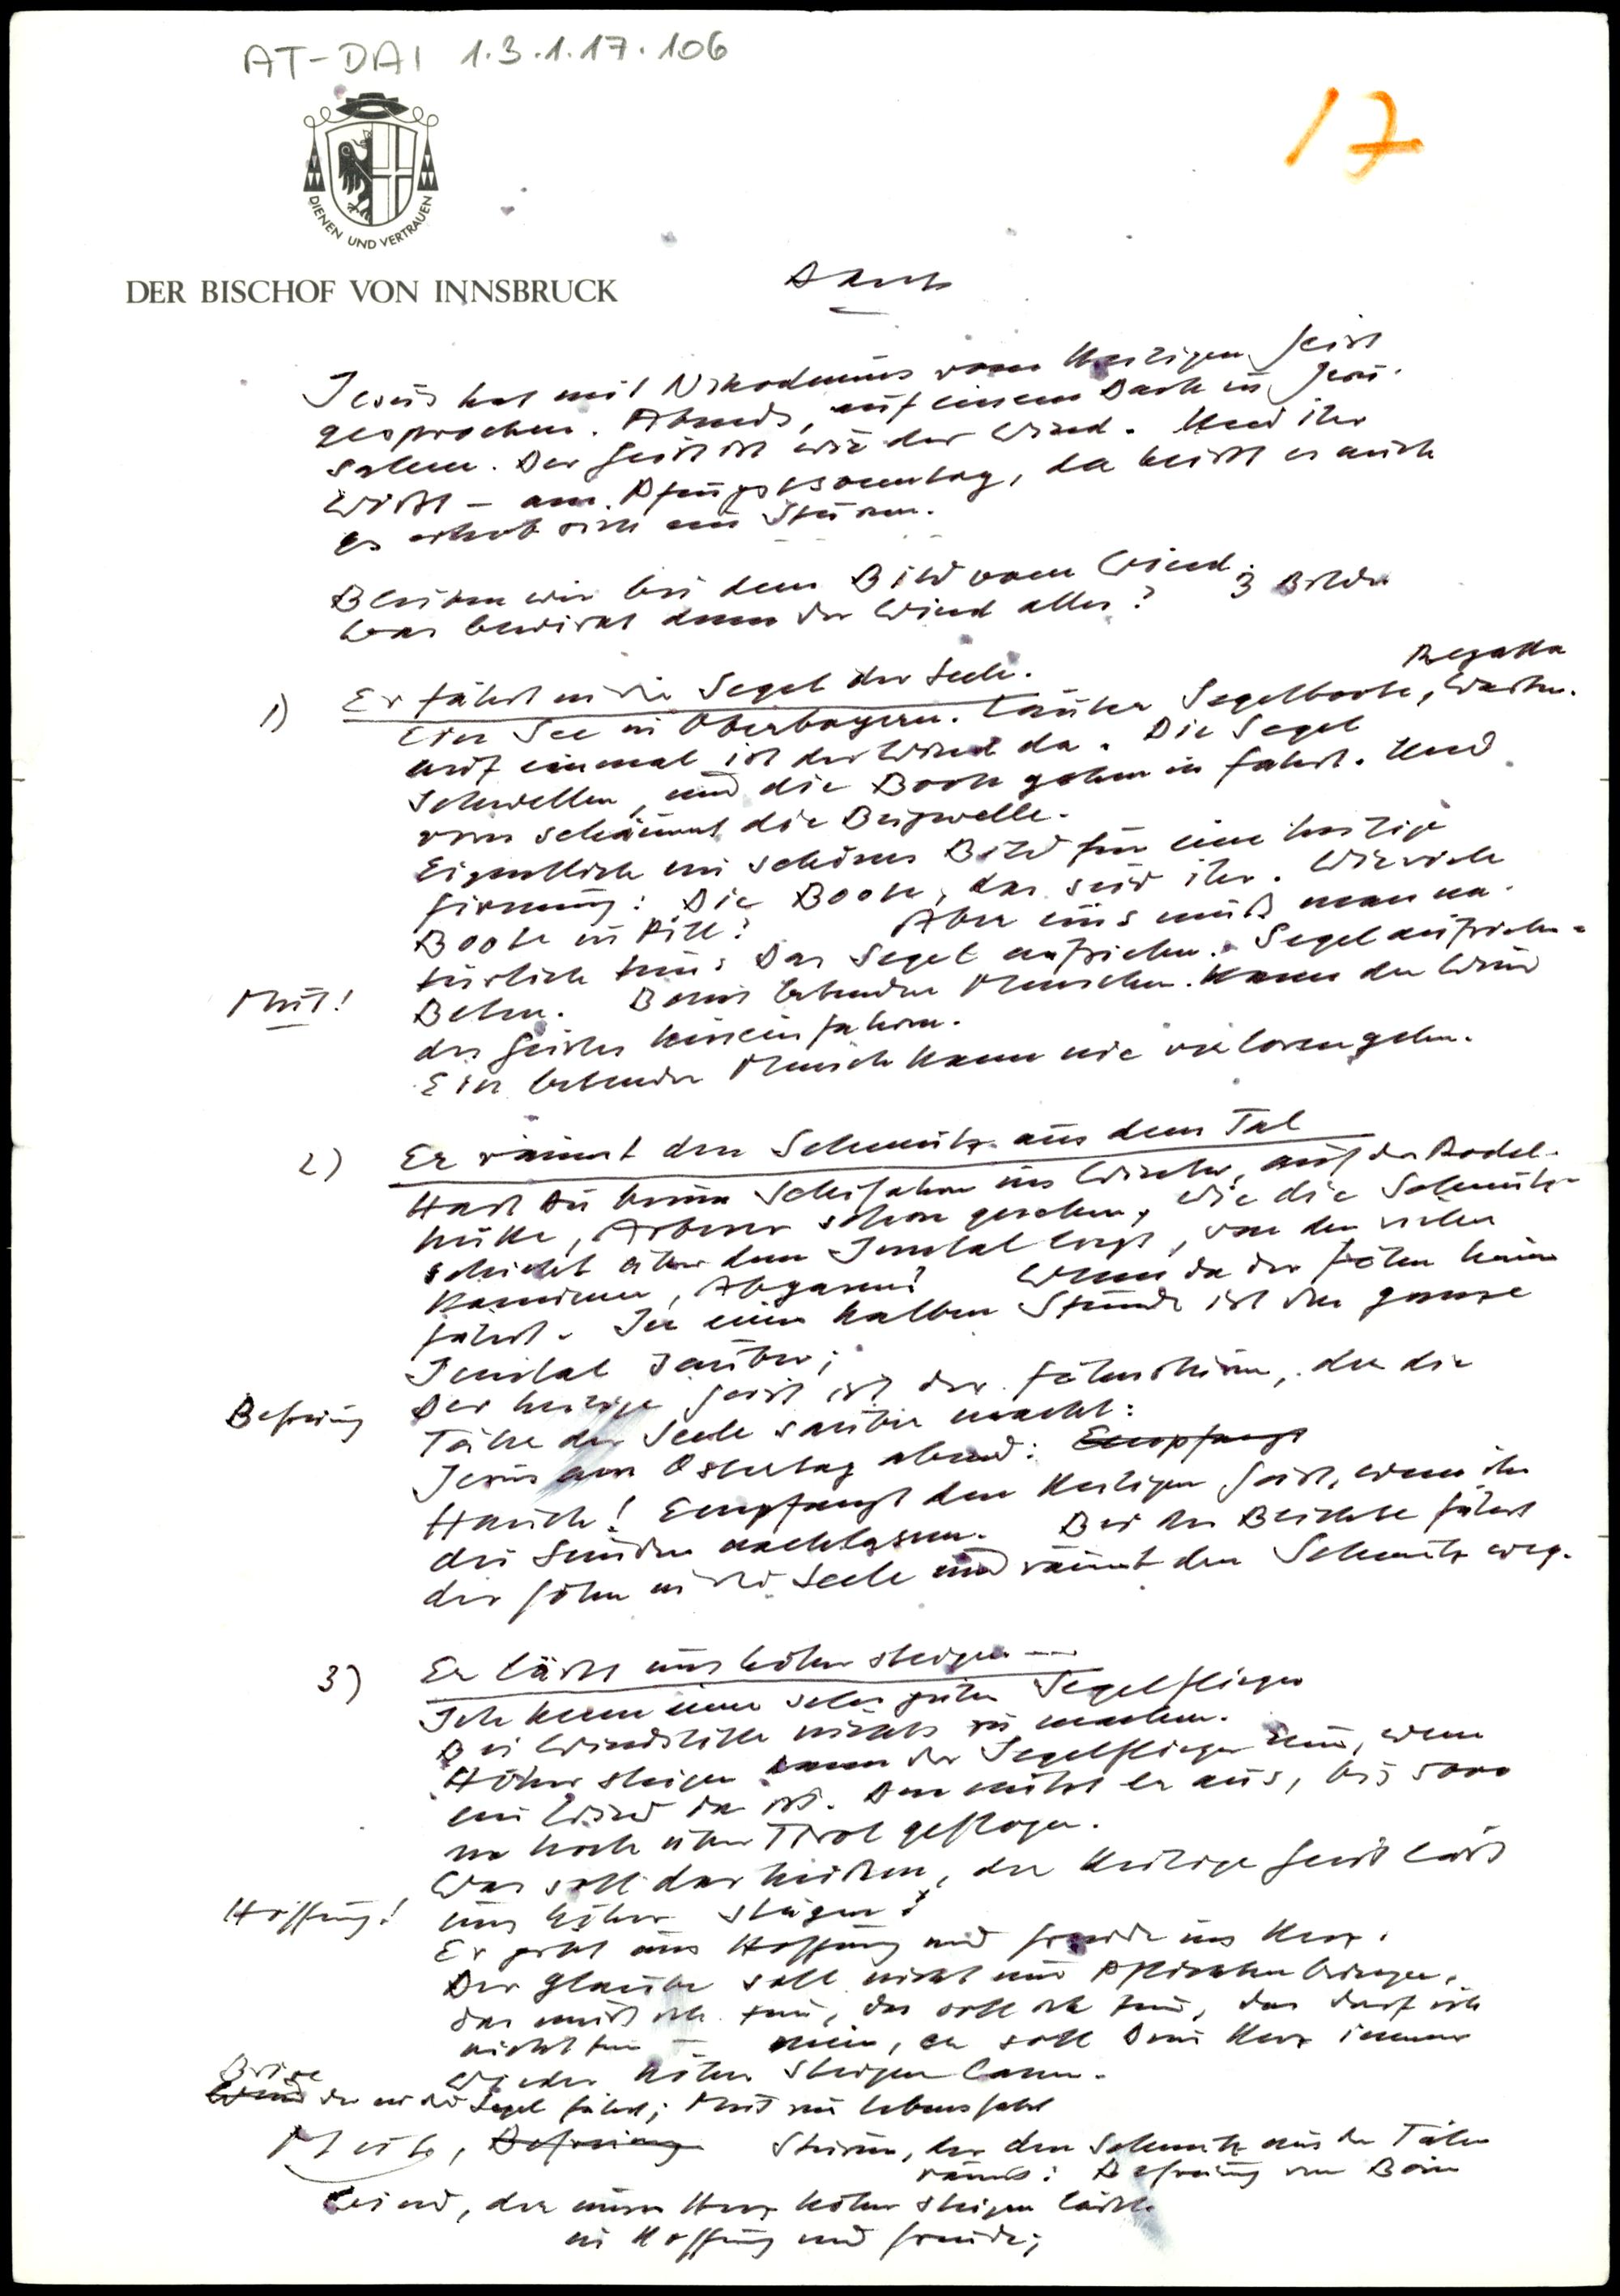 AT-DAI 1.3.1.17.106
17
DIENEN UND VERTRAUEN
DER BISCHOF VON INNSBRUCK
Jesus hat mit Nikodemus vom Heiligen Geist
gesprochen. Abends, auf einem Dach in Jeru-
salem. Der Geist ist wie der Wind. Und ihr
wißt – am Pfingstsonntag, da heißt es auch
es erhob sich ein Sturm.
Bleiben wir bei dem Bild vom Wind.
Was bewirkt denn der Wind alles? 3 Bilder
1) Er fährt in die Segel der Seele.
Regatta
Ein See in Oberbayern. Lauter Segelboote, warten.
auf einmal ist der Wind da. Die Segel
schwellen, und die Boote gehen in Fahrt. Und
vorn schäumt die Bugwelle.
Eigentlich ein schönes Bild für eine heilige
Firmung: Die Boote, das seid ihr. Wieviele
Boote in Pill? Aber eins muß man na-
türlich tun: Das Segel aufziehen. Segel aufziehen =
Mut! Beten. Beim betenden Menschen kann der Wind
des Geistes hineinfahren.
Ein betender Mensch kann nie verlorengehen.
2) Er räumt den Schmutz aus dem Tal
Hast Du beim Schifahren im Winter, auf der Rodel-
hütte, Arbeser schon gesehen, wie die Schmutz-
schicht über dem Inntal liegt, von den vielen
Kaminen, Abgasen? Wenn da der Föhn hinein
fährt. In einer halben Stunde ist das ganze
Inntal sauber;
Befreiung Der heilige Geist ist der Föhnsturm, der die
Täler der Seele sauber macht:
Jesus am Ostertag abend: Empfangt
Hauch! Empfangt den Heiligen Geist, wenn ihr
die Sünden nachlassen. Bei der Beichte fährt
der Föhn in die Seele und räumt den Schmutz weg.
3) Er läßt uns höher steigen —
Ich kenn einen sehr guten Segelflieger
Bei Windstille nichts zu machen.
Höher steigen kann der Segelflieger nur, wenn
ein Wind da ist. Den nützt er aus, bis 5000
m hoch über Tirol geflogen.
Was soll das heißen, der Heilige Geist läßt
Hoffnung! uns höher steigen?
Er gibt uns Hoffnung und Freude ins Herz.
Der Glaube soll nicht nur Pflichten bringen,
das muß ich tun, das soll ich tun, das darf ich
nicht tun – nein, er soll Dein Herz immer
wieder höher steigen lassen.
Brise
Wind der in die Segel fährt; Mut zur Lebensfahrt
Befreiung Sturm, der den Schmutz aus den Tälern
räumt: Befreiung vom Bösen
Wind, der unser Herz höher steigen läßt
in Hoffnung und Freude;